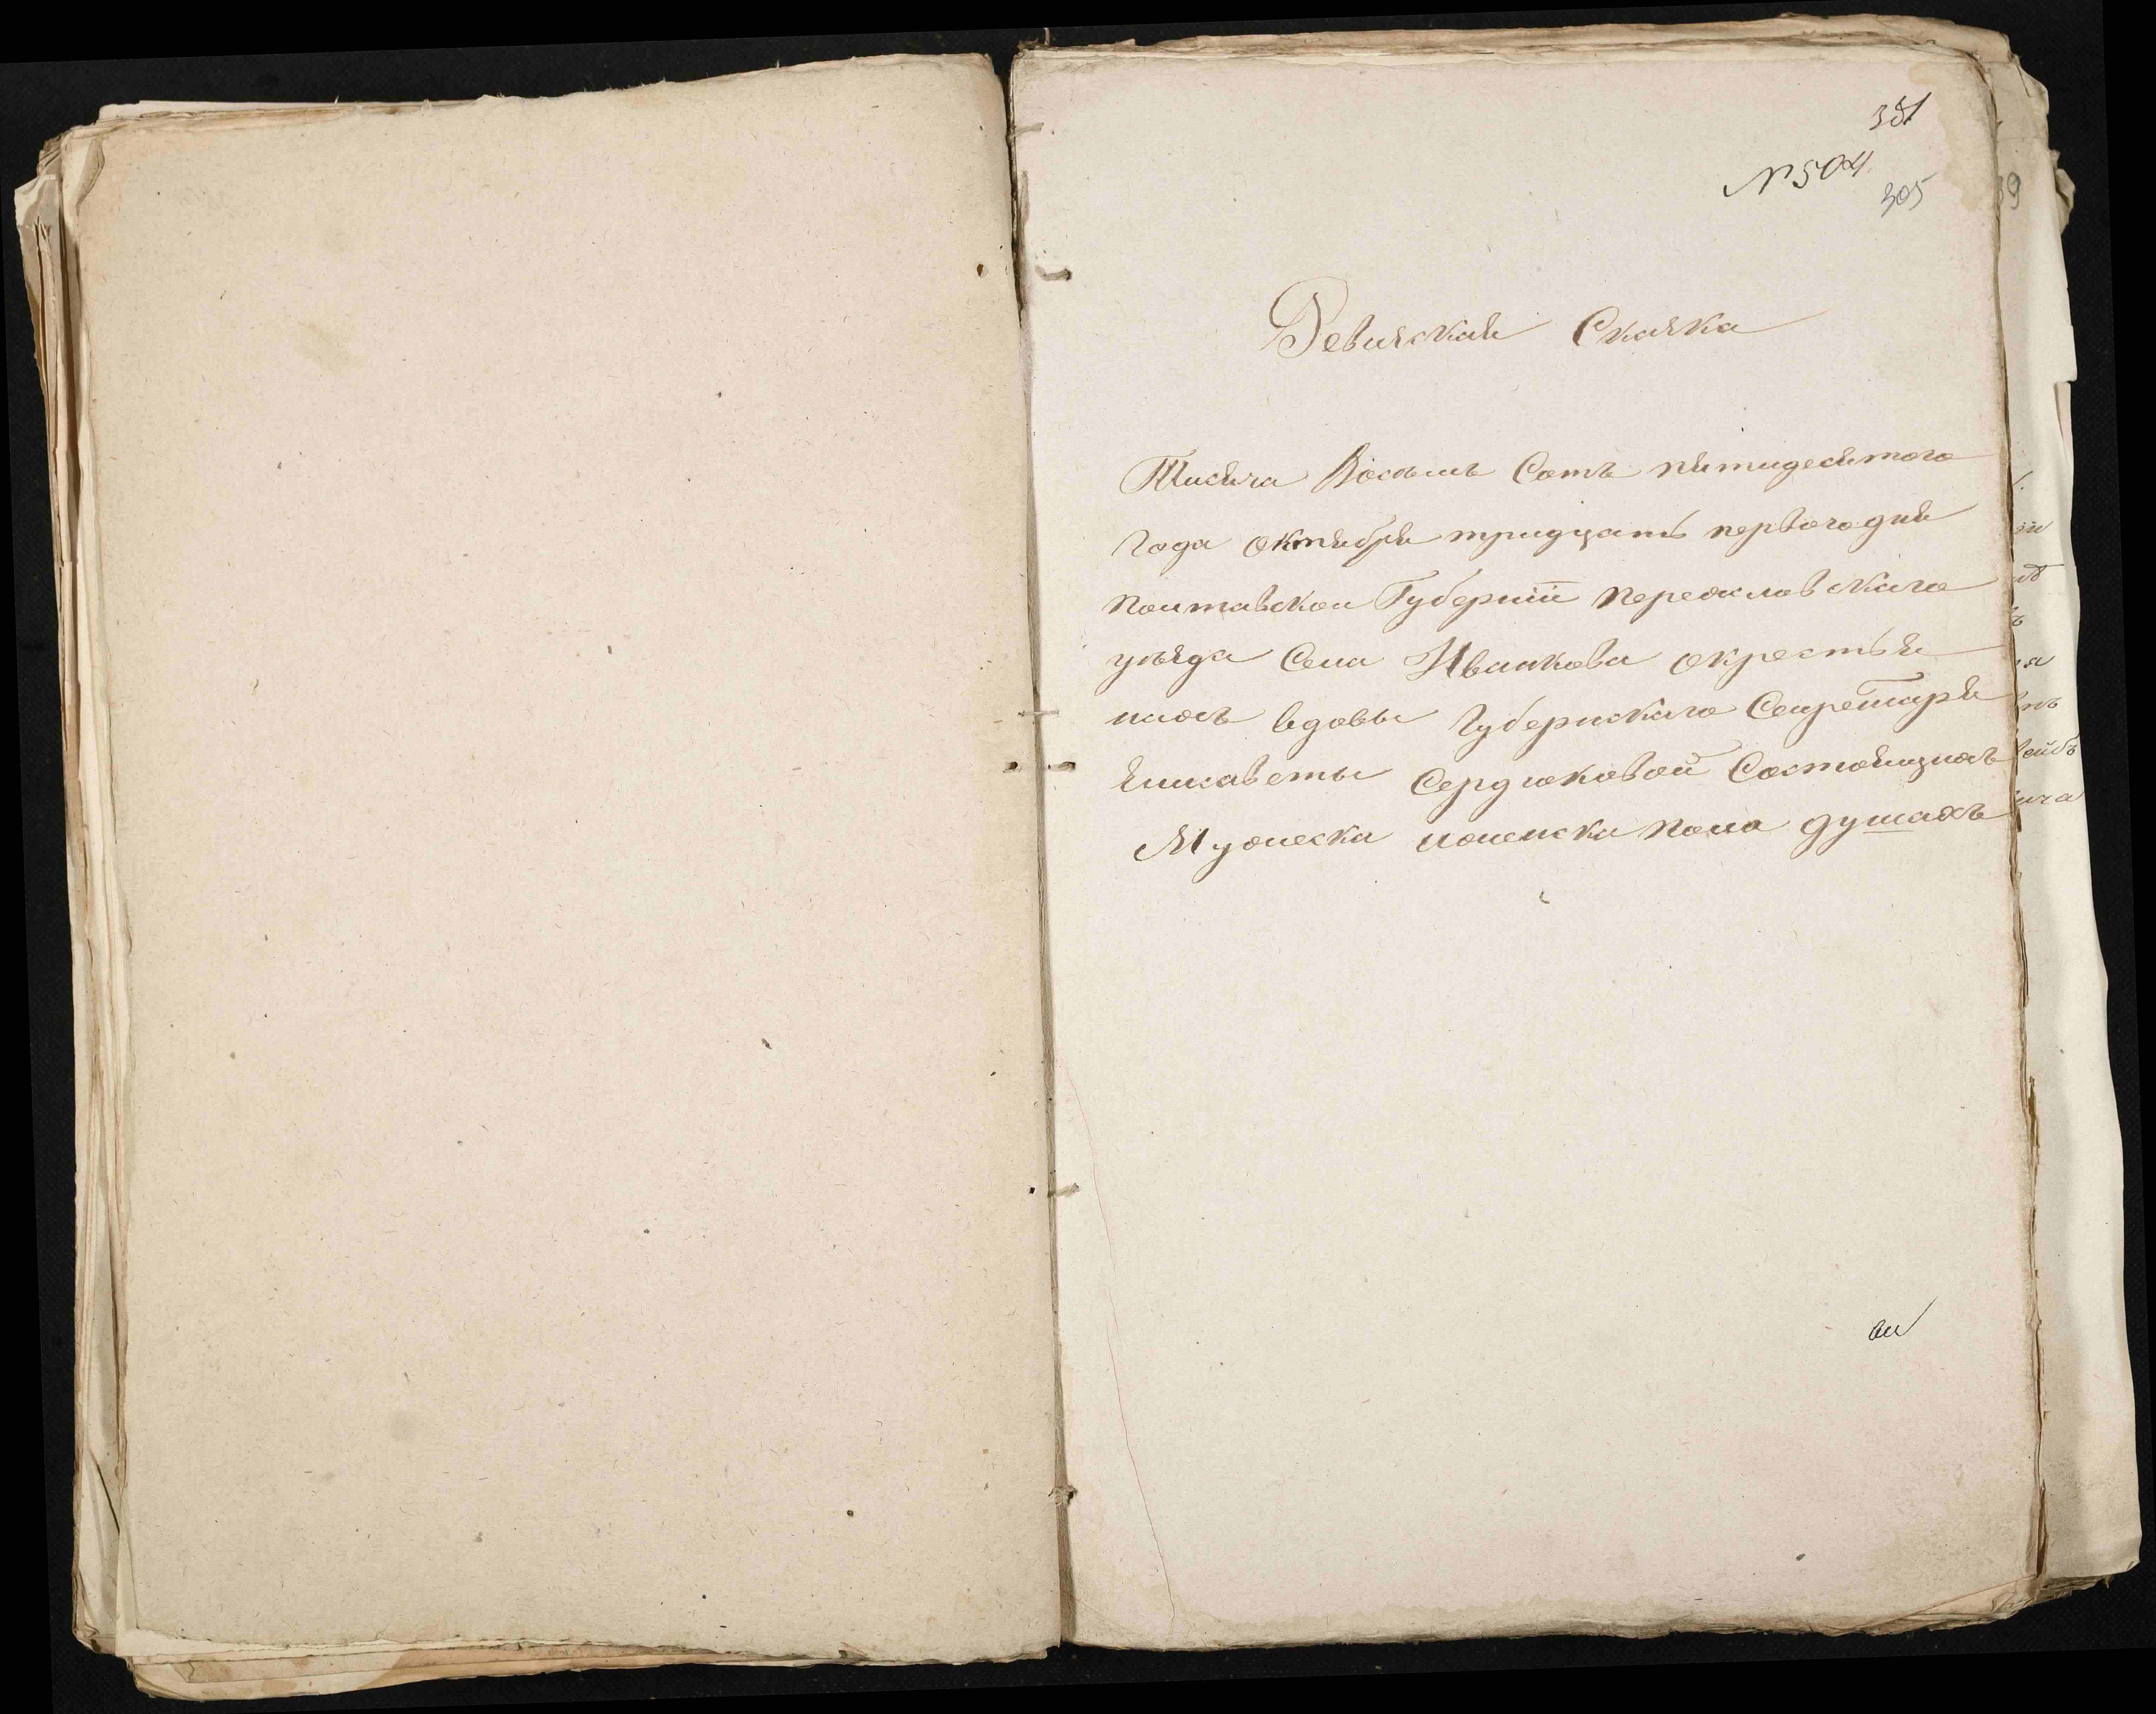 381
№ 504
305
Ревизская Сказка
Тисяча Восемъ Сотъ пятидесятого
Года октября тридцать первого дня
полтавской Губернiи переяславского
уезда Села Иванкова окрестья
нахъ вдовы Губернскаго Секретаря
Елисаветы Сердюковой Состоящихъ
Мужеска иженска пола душахъ